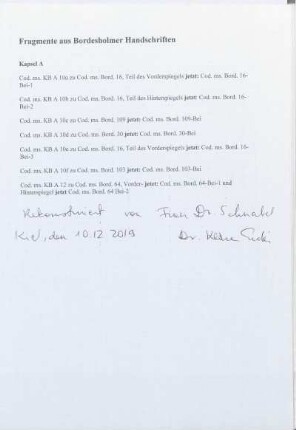 Fragmente aus Bordesholmer Handschriften
Kapsel A
Cod. ms. KB A 10a zu Cod. ms. Bord. 16, Teil des Vorderspiegels jetzt: Cod. ms. Bord. 16-
Bei-1
Cod. ms. KB A 10b zu Cod. ms. Bord. 16, Teil des Hinterspiegels jetzt: Cod. ms. Bord. 16-
Bei-2
Cod. ms. KB A 10c zu Cod. ms. Bord. 109 jetzt: Cod. ms. Bord. 109-Bei
Cod. ms. KB A 10d zu Cod. ms. Bord. 20 jetzt: Cod. ms. Bord. 20-Bei
Cod. ms. KB A 10e zu Cod. ms. Bord. 16, Teil des Vorderspiegels jetzt: Cod. ms. Bord. 16-
Bei-3
Cod. ms. KB A 10f zu Cod. ms. Bord. 103 jetzt: Cod. ms. Bord. 103-Bei
Cod. ms. KB A 12 zu Cod. ms. Bord. 64, Vorder- jetzt: Cod. ms. Bord. 64-Bei-1 und
Hinterspiegel jetzt Cod. ms. Bord. 64 Bei-2
Rekonstruiert von Frau Dr. Schnabel
Kiel, den 10.12.2019 Dr.